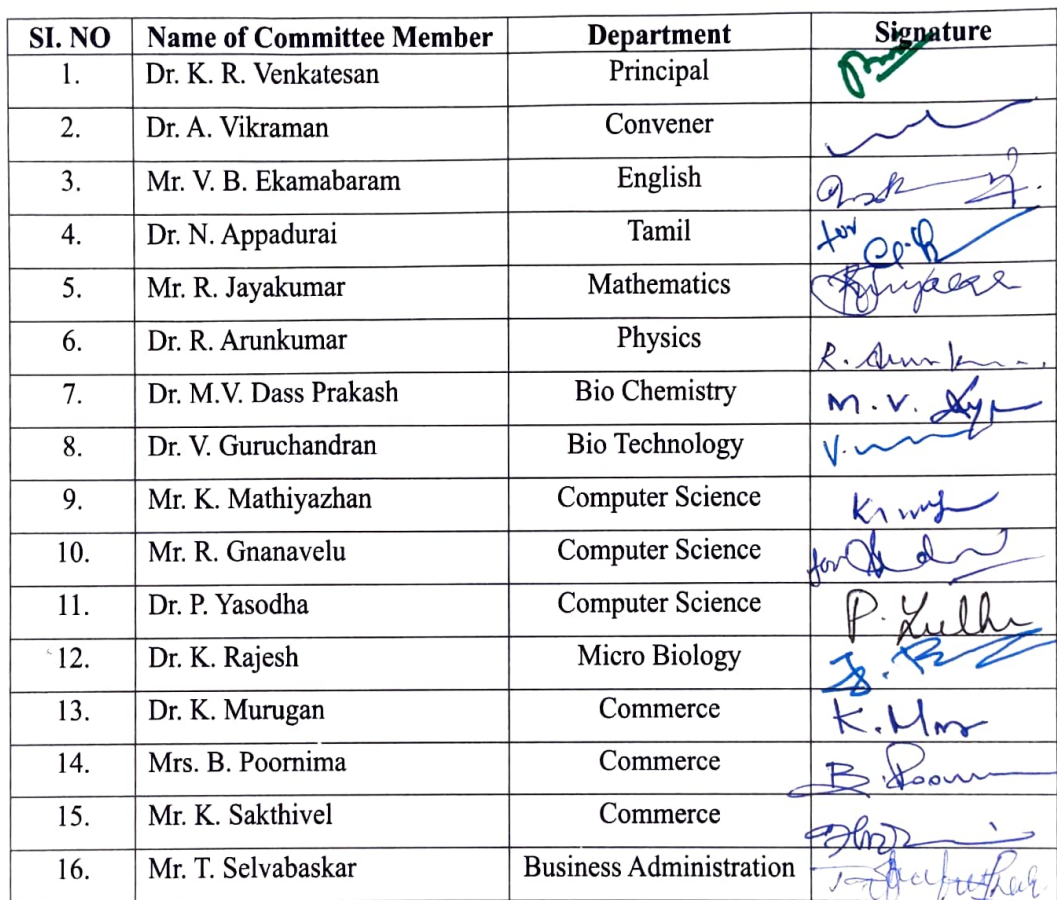 SI. NO Name of Committee Member Department Signature
1. Dr. K. R. Venkatesan Principal
2. Dr. A. Vikraman Convener
3. Mr. V. B. Ekamabaram English
4. Dr. N. Appadurai Tamil for
5. Mr. R. Jayakumar Mathematics
6. Dr. R. Arunkumar Physics R.
7. Dr. M.V. Dass Prakash Bio Chemistry M. V.
8. Dr. V. Guruchandran Bio Technology V.
9. Mr. K. Mathiyazhan Computer Science
10. Mr. R. Gnanavelu Computer Science for
11. Dr. P. Yasodha Computer Science P.
12. Dr. K. Rajesh Micro Biology
13. Dr. K. Murugan Commerce K.
14. Mrs. B. Poornima Commerce B.
15. Mr. K. Sakthivel Commerce
16. Mr. T. Selvabaskar Business Administration